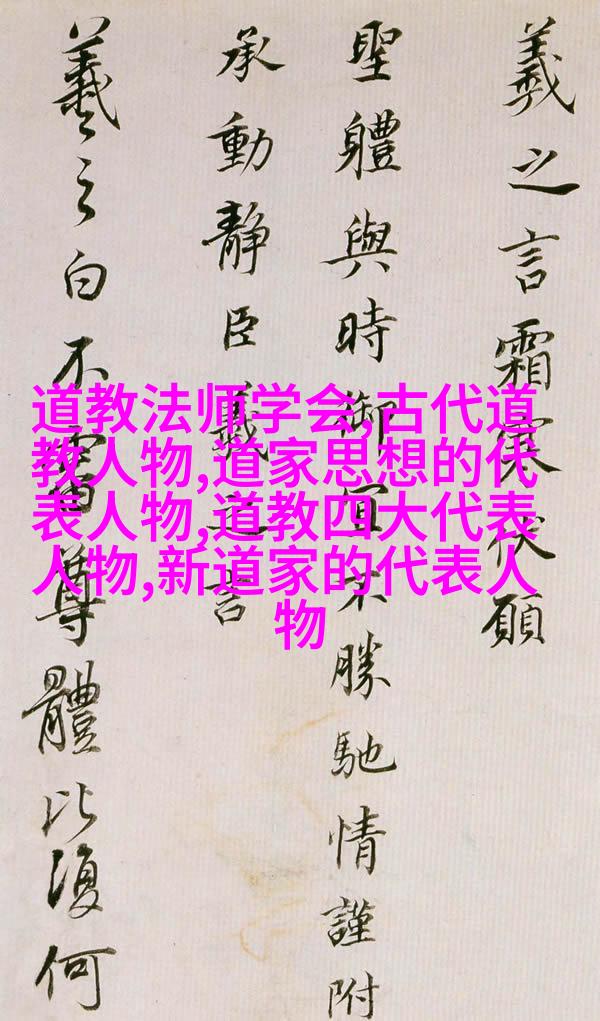 羲之言霜寒伏願
聖體與時御宜不勝馳情謹附
承動靜臣羲之言
羲之白不審尊體比復何
道教法师学会,古代道
教人物,道家思想的代
表人物,道教四大代表
人物,新道家的代表人
物